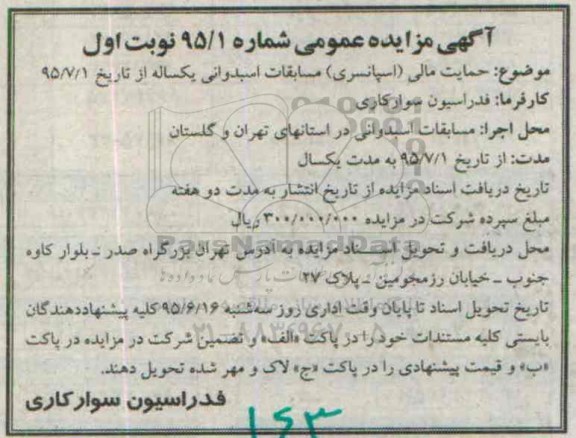 آگهی مزایده عمومی شماره ۹۵/۱ نوبت اول
موضوع: حمایت مالی (اسپانسری) مسابقات اسبدوانی یکساله از تاریخ ۹۵/۷/۱
کارفرما: فدراسیون سوارکاری
محل اجرا: مسابقات اسبدوانی در استانهای تهران و گلستان
مدت: از تاریخ ۹۵/۷/۱ به مدت یکسال
تاریخ دریافت اسناد مزایده از تاریخ انتشار به مدت دو هفته
مبلغ سپرده شرکت در مزایده ۳۰۰/۰۰۰/۰۰۰ ریال
محل دریافت و تحویل اسناد مزایده به آدرس تهران بزرگراه صدر ـ بلوار کاوه
جنوب ـ خیابان رزمجومین ـ پلاک ۲۷
تاریخ تحویل اسناد تا پایان وقت اداری روز سه‌شنبه ۹۵/۶/۱۶ کلیه پیشنهاددهندگان
بایستی کلیه مستندات خود را در پاکت «الف» و تضمین شرکت در مزایده در پاکت
«ب» و قیمت پیشنهادی را در پاکت «ج» لاک و مهر شده تحویل دهند.
فدراسیون سوارکاری
۱۶۳
ParsNamadData